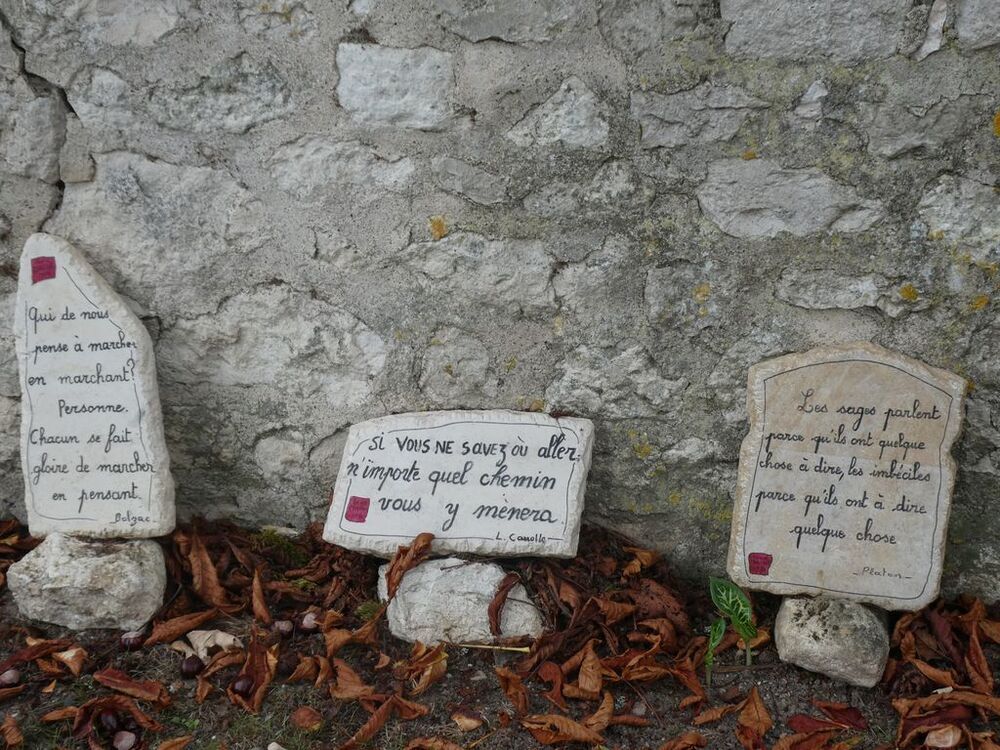 Qui de nous
pense à marcher
en marchant?
Personne.
Chacun se fait
gloire de marcher
en pensant.
Balzac
Si vous ne savez où aller,
n'importe quel chemin
vous y mènera.
L. Carroll
Les sages parlent
parce qu'ils ont quelque
chose à dire, les imbéciles
parce qu'ils ont à dire
quelque chose
-Platon-